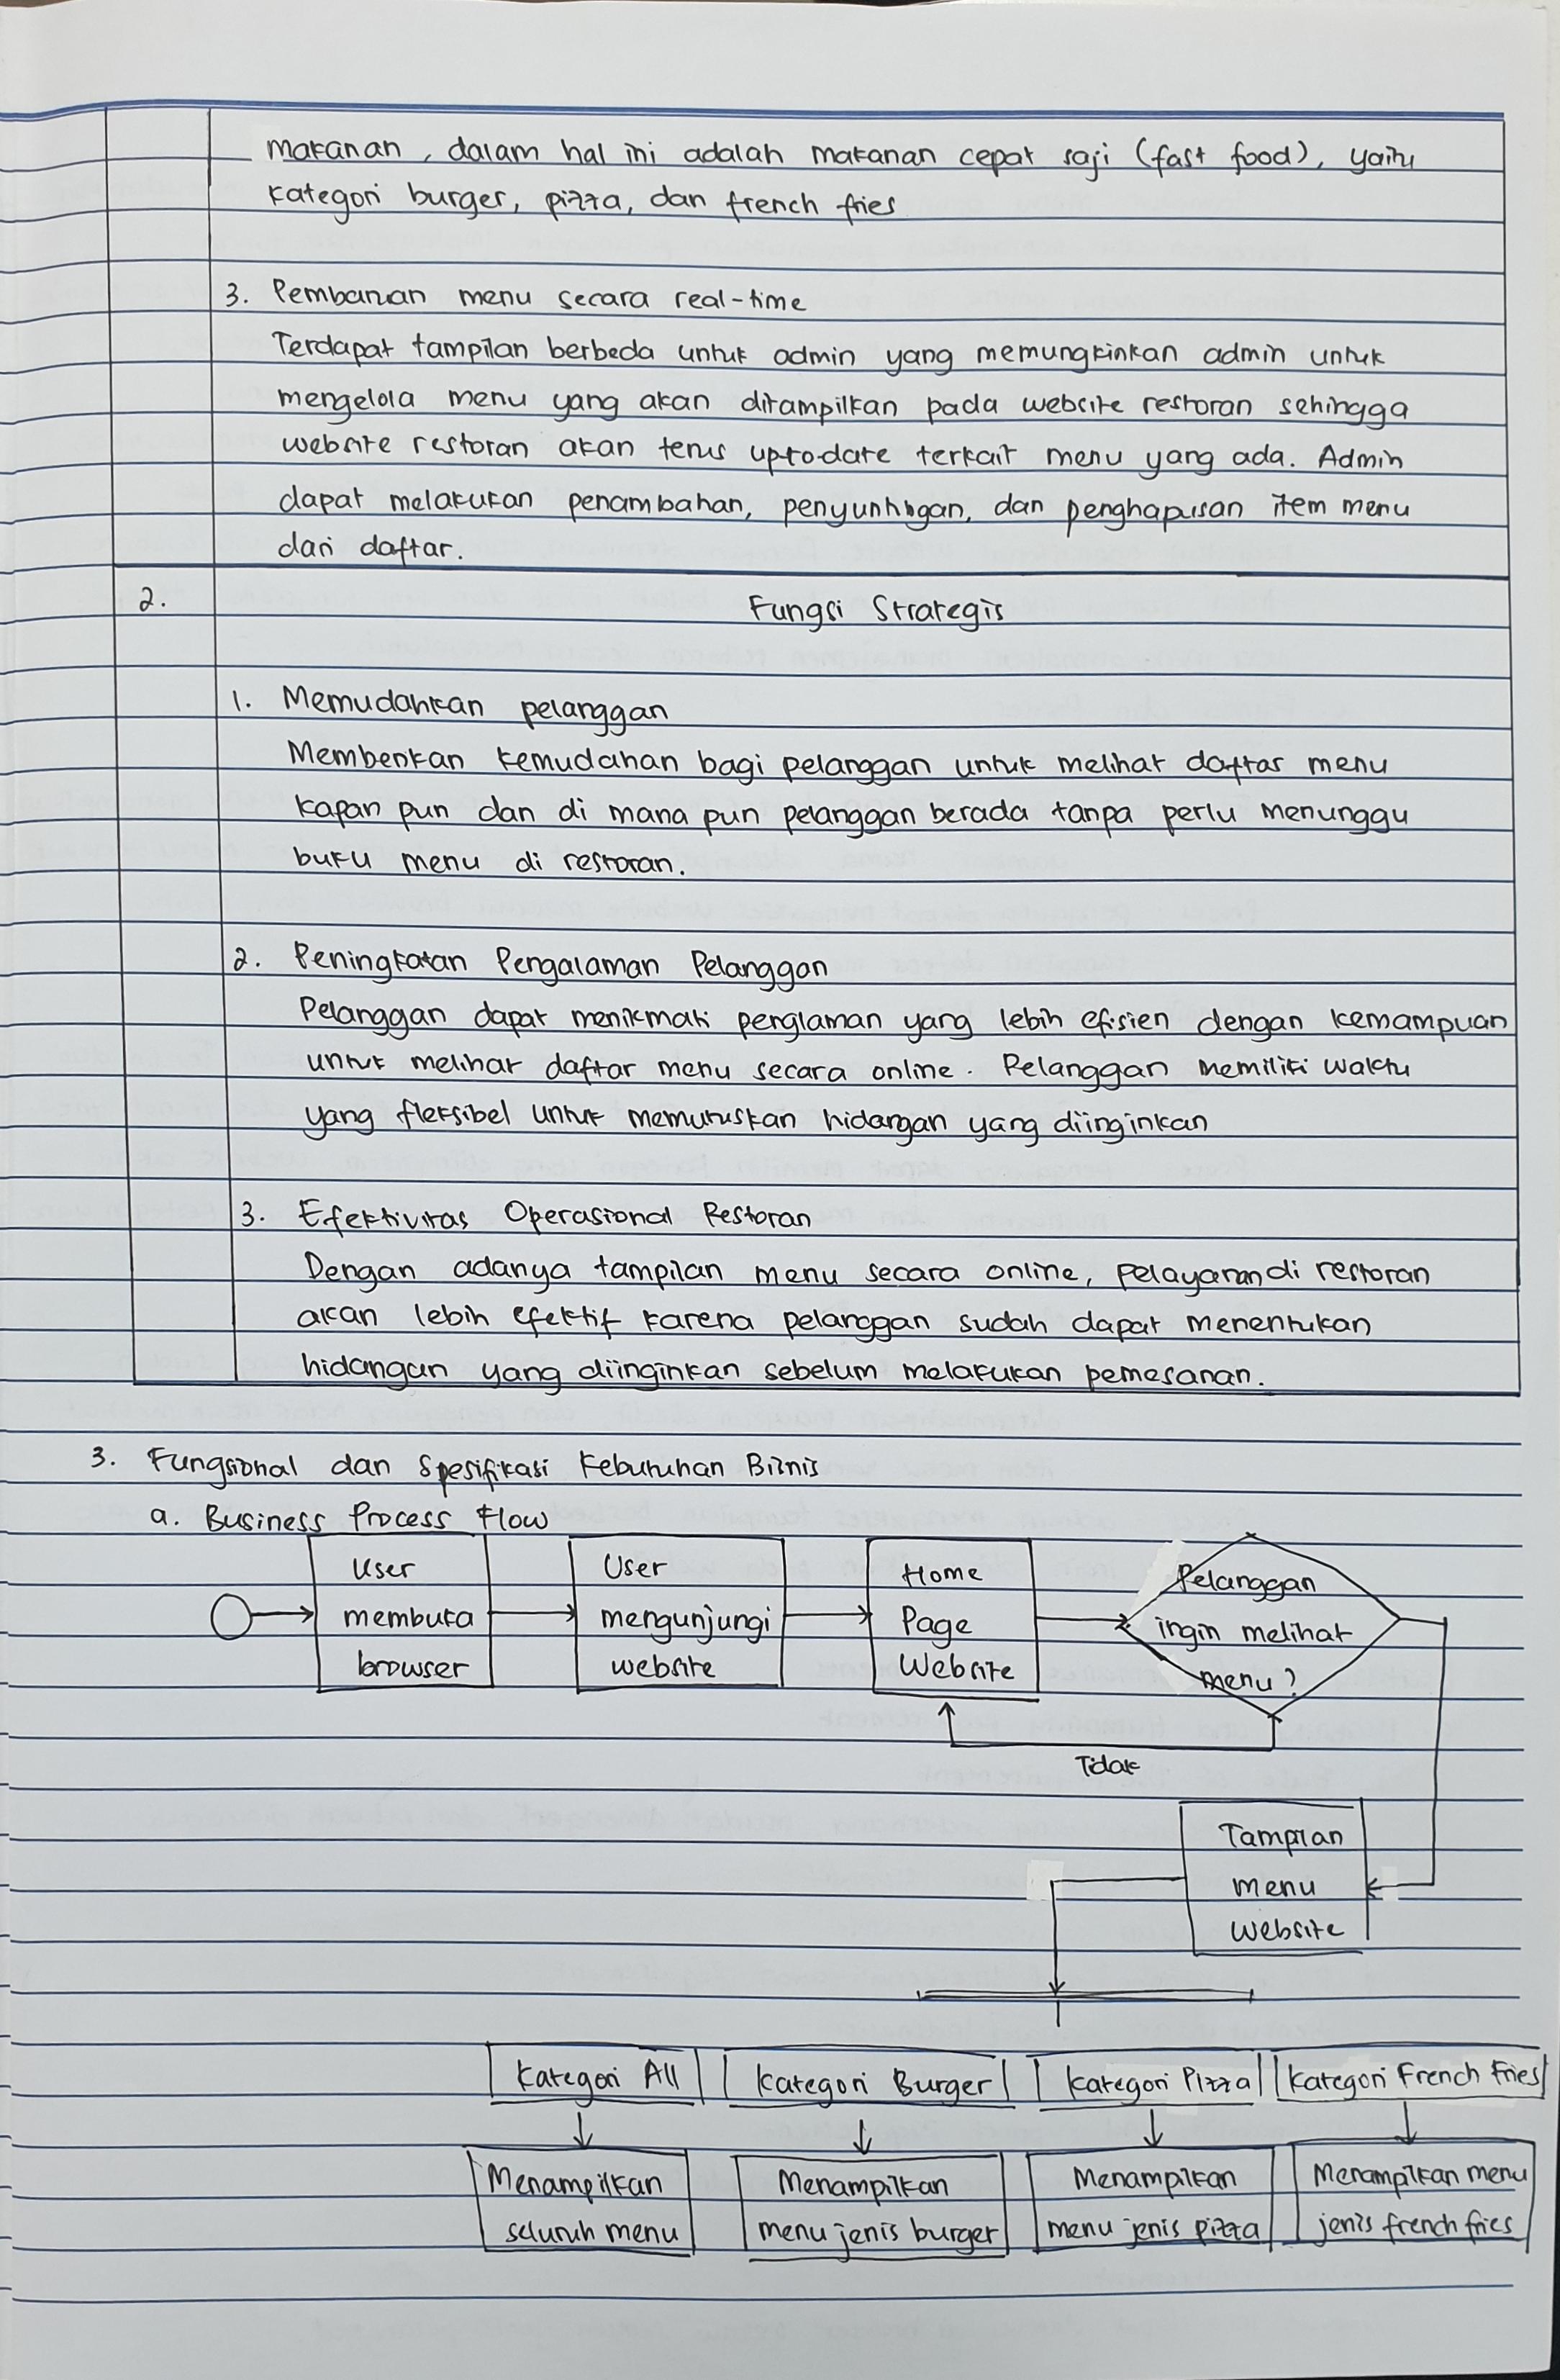 makanan, dalam hal ini adalah makanan cepat saji (fast food), yaitu
kategori burger, pizza, dan french fries
3. Pembaruan menu secara real-time
Terdapat tampilan berbeda untuk admin yang memungkinkan admin untuk
mengelola menu yang akan ditampilkan pada website restoran sehingga
website restoran akan terus up-to-date terkait menu yang ada. Admin
dapat melakukan penambahan, penyuntingan, dan penghapusan item menu
dari daftar.
2. Fungsi Strategis
1. Memudahkan pelanggan
Memberikan kemudahan bagi pelanggan untuk melihat daftar menu
kapan pun dan di mana pun pelanggan berada tanpa perlu menunggu
buku menu di restoran.
2. Peningkatan Pengalaman Pelanggan
Pelanggan dapat menikmati penglaman yang lebih efisien dengan kemampuan
untuk melihat daftar menu secara online. Pelanggan memiliki waktu
yang fleksibel untuk memutuskan hidangan yang diinginkan
3. Efektivitas Operasional Restoran
Dengan adanya tampilan menu secara online, pelayanan di restoran
akan lebih efektif karena pelanggan sudah dapat menentukan
hidangan yang diinginkan sebelum melakukan pemesanan.
3. Fungsional dan Spesifikasi Kebutuhan Bisnis
a. Business Process Flow
User
membuka
browser
User
mengunjungi
website
Home
Page
Website
Pelanggan
ingin melihat
menu?
Tidak
Tampilan
menu
website
Kategori All
Kategori Burger
Kategori Pizza
Kategori French Fries
Menampilkan
seluruh menu
Menampilkan
menu jenis burger
Menampilkan
menu jenis pizza
Menampilkan menu
jenis french fries